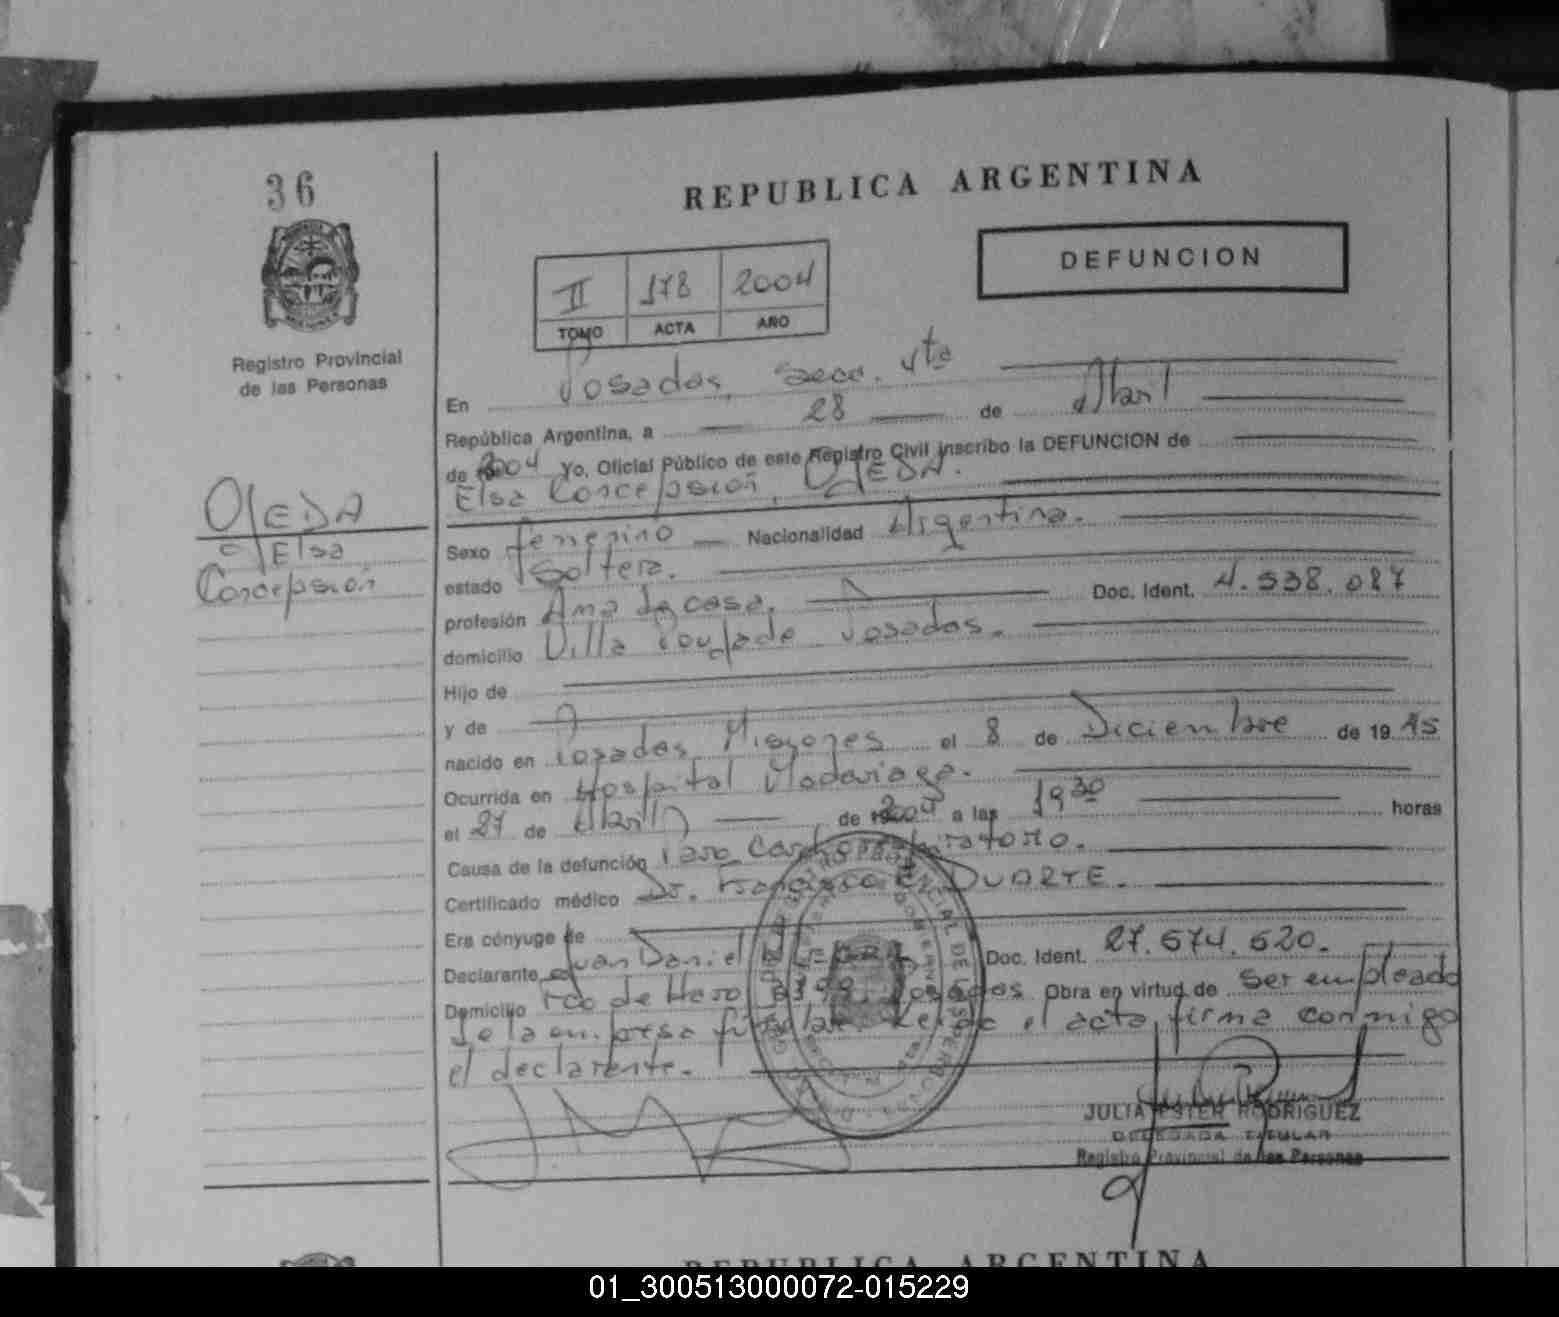 36
REPUBLICA ARGENTINA
DEFUNCION
II 178 2004
TOMO ACTA AÑO
Registro Provincial
de las Personas
En Posadas, Secc. 4ta
República Argentina, a 28 de Abril
de 2004 Yo, Oficial Público de este Registro Civil inscribo la DEFUNCION de
Elsa Concepsión, OJEDA.
OJEDA
Elsa
Concepsión
Sexo femenino Nacionalidad Argentina.
estado Soltera.
profesión Ama de casa. Doc. Ident. 4.538.087
domicilio Villa Posadas.
Hijo de
y de
nacido en Posadas Misiones el 8 de Diciembre de 1945
Ocurrida en Hospital Madariaga.
el 27 de Abril de 2004 a las 19 30 horas
Causa de la defunción Paro Cardiorespiratorio.
Certificado médico Dr. DUARTE.
Era cónyuge de
Declarante Juan Daniel Doc. Ident. 27.574.520.
Domicilio Posadas Obra en virtud de ser empleado
de la empresa el acta firma conmigo
el declarante.
JULIA ESTER RODRIGUEZ
DELEGADA TITULAR
Registro Provincial de las Personas
REPUBLICA ARGENTINA
01_300513000072-015229